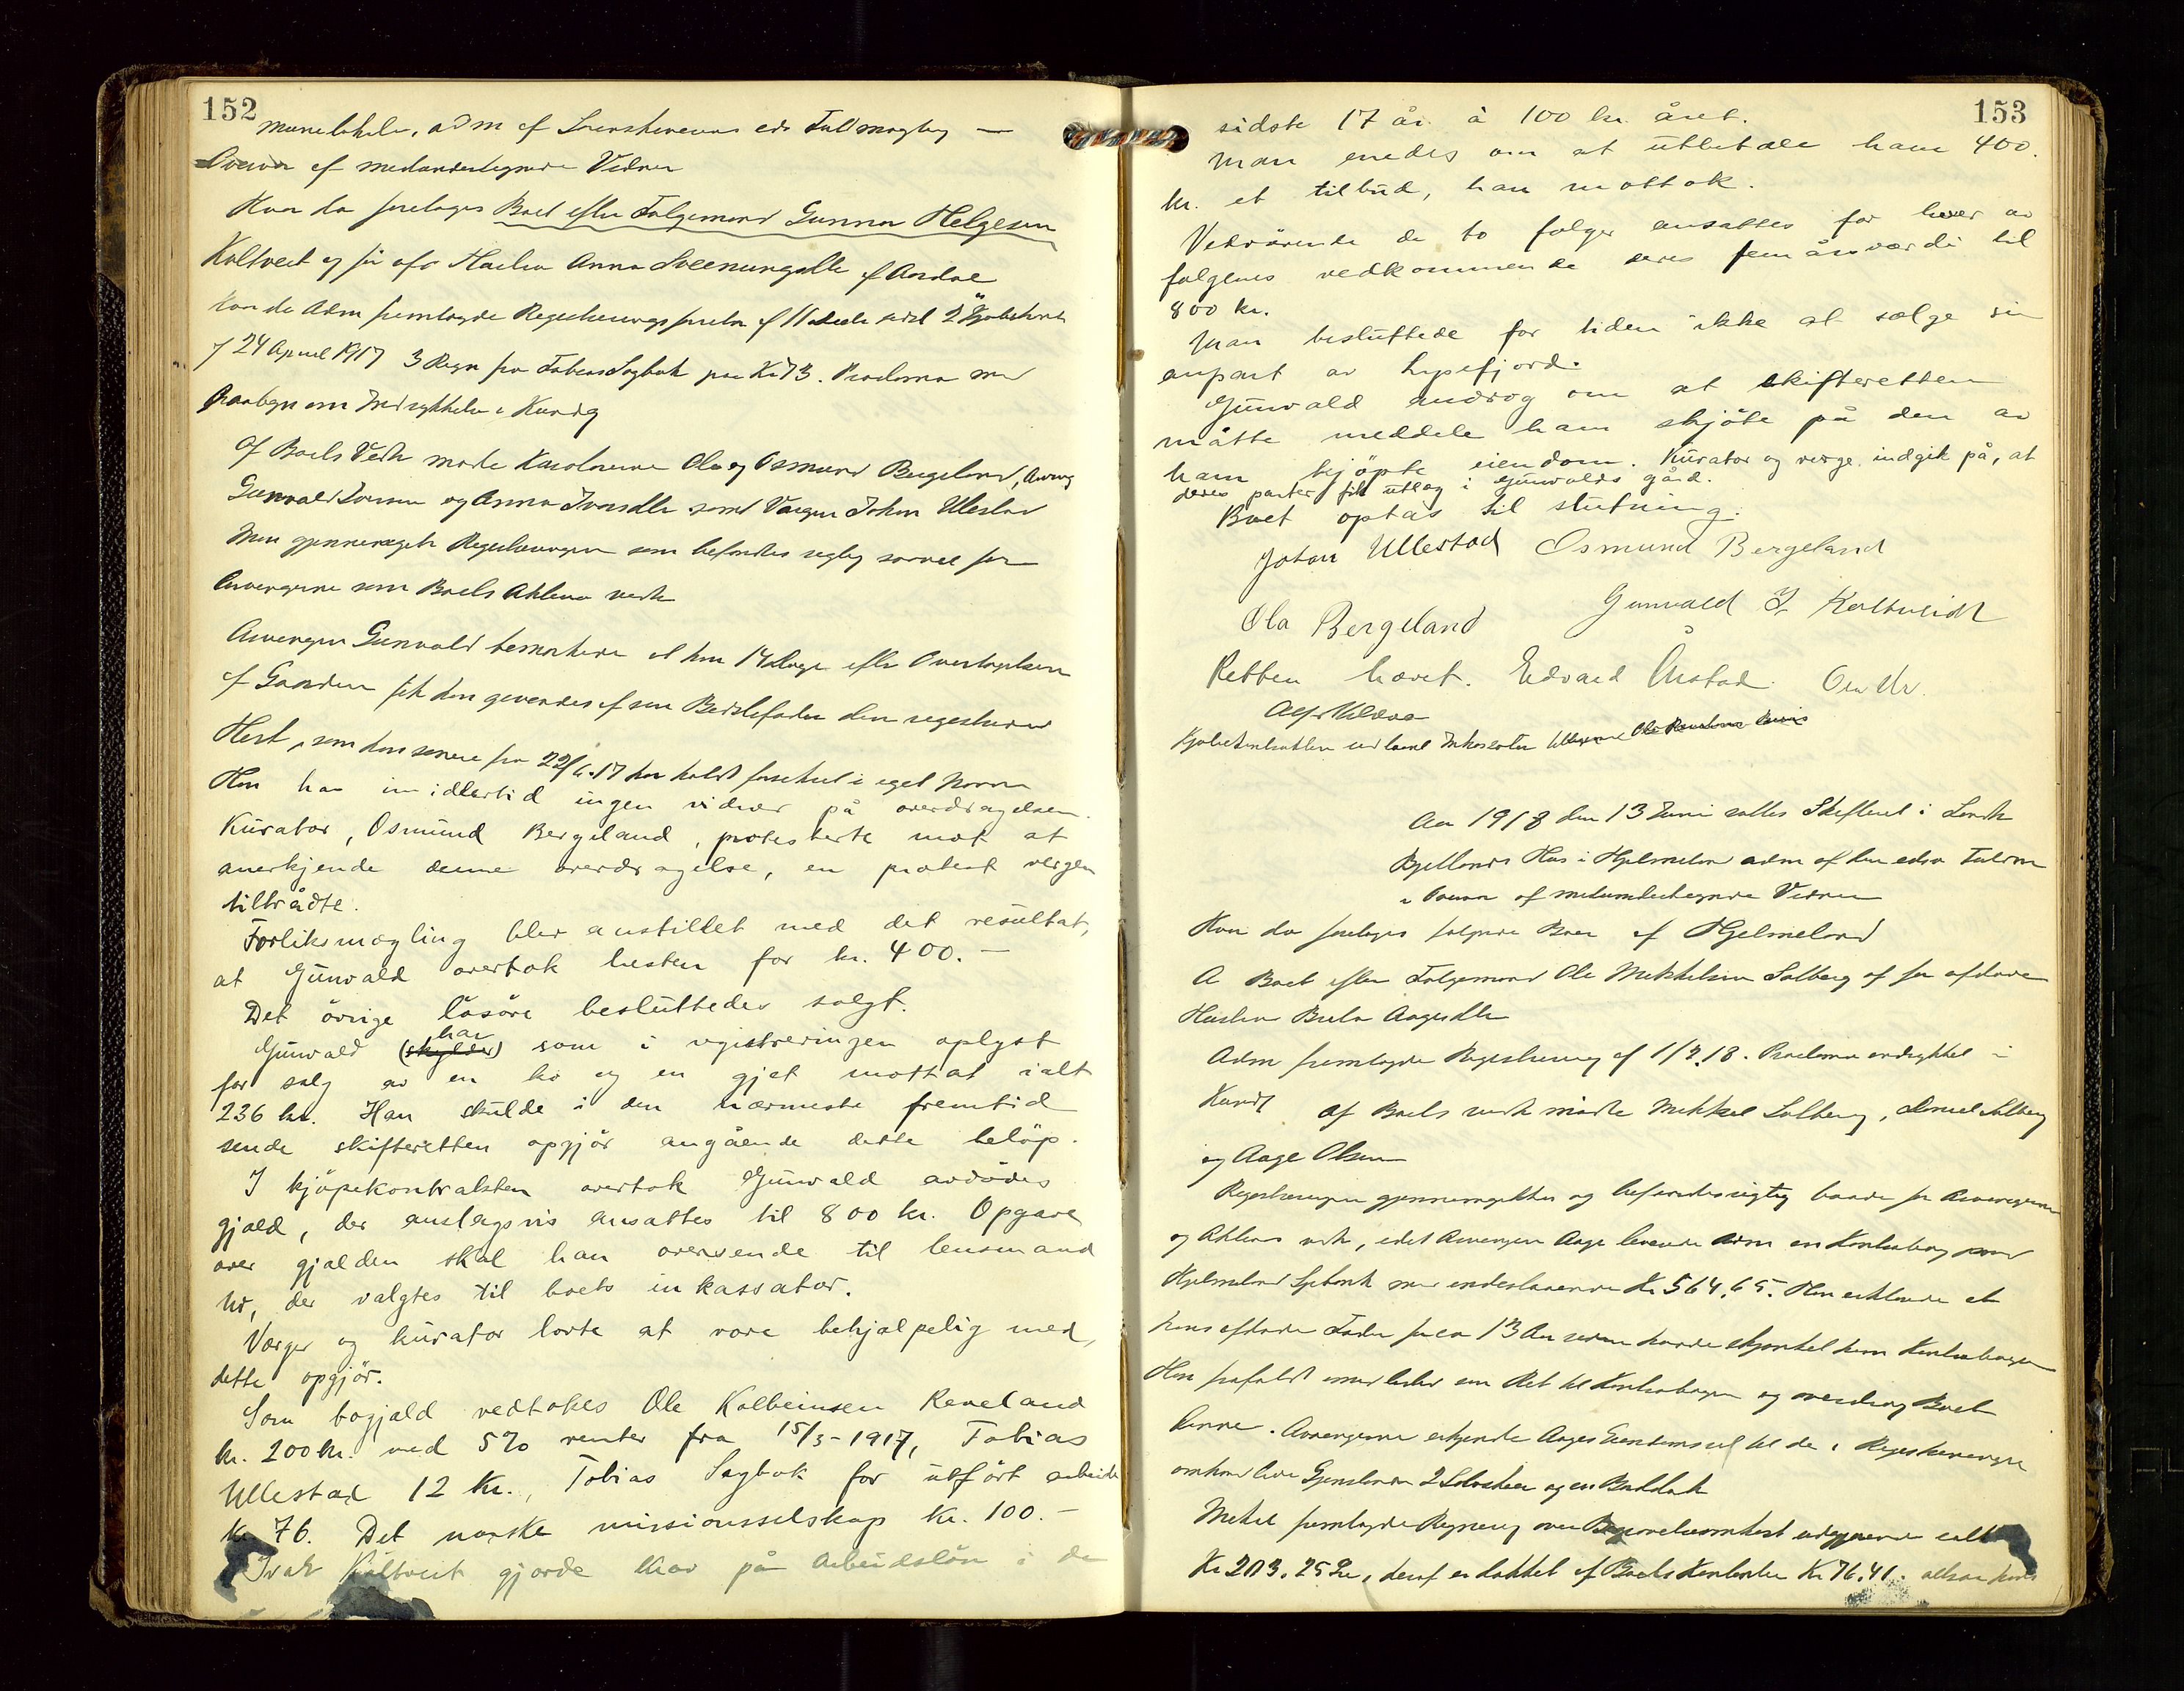 152
adm af Sorenskriveren eds Fuldmægtig —
Overvær af medundertegnede Vidner
Kom da foretages Boet efter Folgemand Gunnar Helgesen
Kaltveit og før afd Hustru Anna Sveenungsdtr af Aardal
Kom da Adm fremlagde Registreringsforretn af 11 samt 2 Kjøbekont
af 24 April 1917 3 Regn fra Tobias Sagbak paa Kr 73. Proclama med
Paategn om Indrykkelse i Kundg
Af Boets Vedk mødte Karolinerne Ola og Osmund Bergeland, Arving
Gunvald Ivarsen og Anna Ivarsdtr samt Værgen Johan Ullestad
Man gjennemgik Registreringen som befandtes rigtig saavel for
Arvingerne som Boets Aktiva vedk
Arvingen Gunvald bemærkede at han 14 Dage efter Overtagelsen
af Gaarden fik den givendes af sin Bedstefader den registrerede
Hest, som han senere fra 22/6.17 har holdt forsikret i eget Navn
Han har imidlertid ingen vidner på overdragelsen.
Kurator, Osmund Bergeland, protesterte mot at
anerkjende denne overdragelse, en protest vergen
tiltrådte.
Forliksmægling blev anstillet med det resultat,
at Gunvald overtok hesten for kr. 400.–
Det övrige lösöre besluttedes solgt.
har
Gunvald (skylder) som i registreringen oplyst
for salg av en ko og en gjet mottat ialt
236 kr. Han skulde i den nærmeste fremtid
sende skifteretten opgjör angående dette belöp.
I kjöpekontrakten overtok Gunvald avdödes
gjæld, der anslagsvis ansattes til 800 kr. Opgave
over gjælden skal han oversende til lensmand
Hr, der valgtes til boets inkassator.
Verge og kurator lovte at være behjælpelig med
dette opgjör.
Som bogjæld vedtokes Ole Kolbeinsen Reveland
kr. 200 kr. med 5% renter fra 15/3-1917, Tobias
Ullestad 12 kr., Tobias Sagbak for utfört arbeide
kr 76. Det norske missionsselskap kr. 100.–
Ivar Kaltveit gjorde krav på arbeidslön i de
153
sidste 17 år à 100 kr. året.
Man enedes om at utbetale ham 400.
kr. et tilbud, han mottok.
Vedrörende de to folger ansattes for hver av
folgenes vedkommende deres femårsværdi til
800 kr.
Man besluttede for tiden ikke at sælge sin
anpart av Lysefjord.
Gunvald androg om at skifteretten
måtte meddele ham skjöte på den av
ham kjöpte eiendom. Kurator og verge indgik på, at
deres parter fik utlæg i Gunvalds gård.
Boet optas til slutning.
Johan Ullestad Osmund Bergeland
Ola Bergeland Gunvald I. Kaltveidt
Retten hævet. Edvard Årstad.
Aa 1918 den 13 Juni sattes Skifteret i Lensm
Bjellands Hus i Hjelmeland adm af den edsv Fuldm
i Overvær af medundertegnede Vidner
Kom da foretages følgende Boer af Hjelmeland
A Boet efter Folgemand Ole Mikkelsen Solberg af før afdøde
Hustru Brita Aagesdtr
Adm fremlagde Registrering af 1/2.18. Proclama indrykket i
Kundg af Boets vedk mødte Mikkel Solberg, Solberg
og Aage Olsen
Registreringen gjennemgikkes og befandtes rigtig baade for Arvingerne
og Aktivas vedk, idet Arvingen Aage leverede Adm en Kontrabog med
Hjelmeland Spbank med indestaaende Kr 564.65. Han erklærede at
hans afdøde Fader for ca 13 Aar siden havde skjænket ham Kontrabogen
Han frafaldt imidlertid sin Ret til Kontrabogen og overdrog Boet
denne. Arvingerne erkjendte Aages Eiendomsret til de i Registreringen
omhandlede Gjenstande 2 Sølvskeer og en
Mikkel fremlagde Regning over Begravelsesomkost udgjørende ialt
Kr 203.25 Øre, deraf er dækket af Boets Kontanter Kr 76.41. altsaa